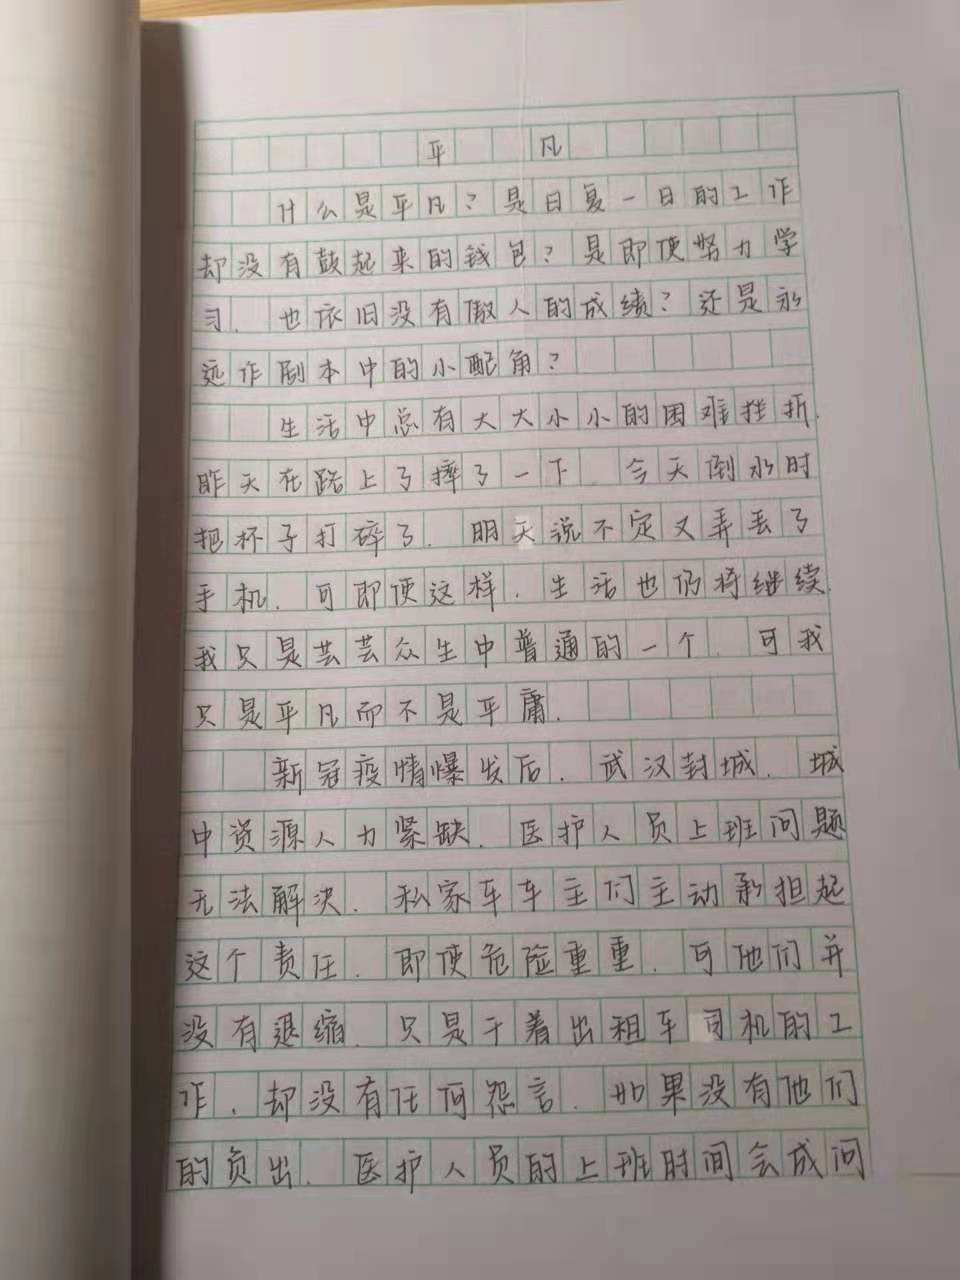 平凡
什么是平凡？是日复一日的工作
却没有鼓起来的钱包？是即使努力学
习、也依旧没有傲人的成绩？还是永
远作剧本中的小配角？
生活中总有大大小小的困难挫折.
昨天在路上了摔了一下、今天倒水时
把杯子打碎了、明天说不定又弄丢了
手机、可即使这样、生活也仍将继续.
我只是芸芸众生中普通的一个、可我
只是平凡而不是平庸.
新冠疫情爆发后、武汉封城、城
中资源人力紧缺、医护人员上班问题
无法解决、私家车车主们主动承担起
这个责任、即使危险重重、可他们并
没有退缩、只是干着出租车司机的工
作、却没有任何怨言、如果没有他们
的负出、医护人员的上班时间会成问